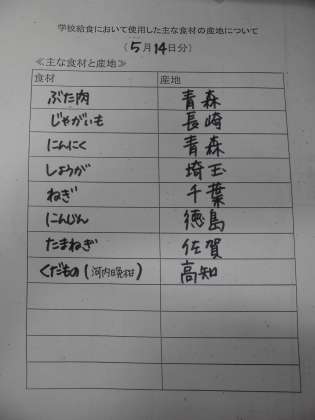 学校給食において使用した主な食材の産地について
(5月14日分)
≪主な食材と産地≫
食材 産地
ぶた肉 青森
じゃがいも 長崎
にんにく 青森
しょうが 埼玉
ねぎ 千葉
にんじん 徳島
たまねぎ 佐賀
くだもの(河内晩柑) 高知